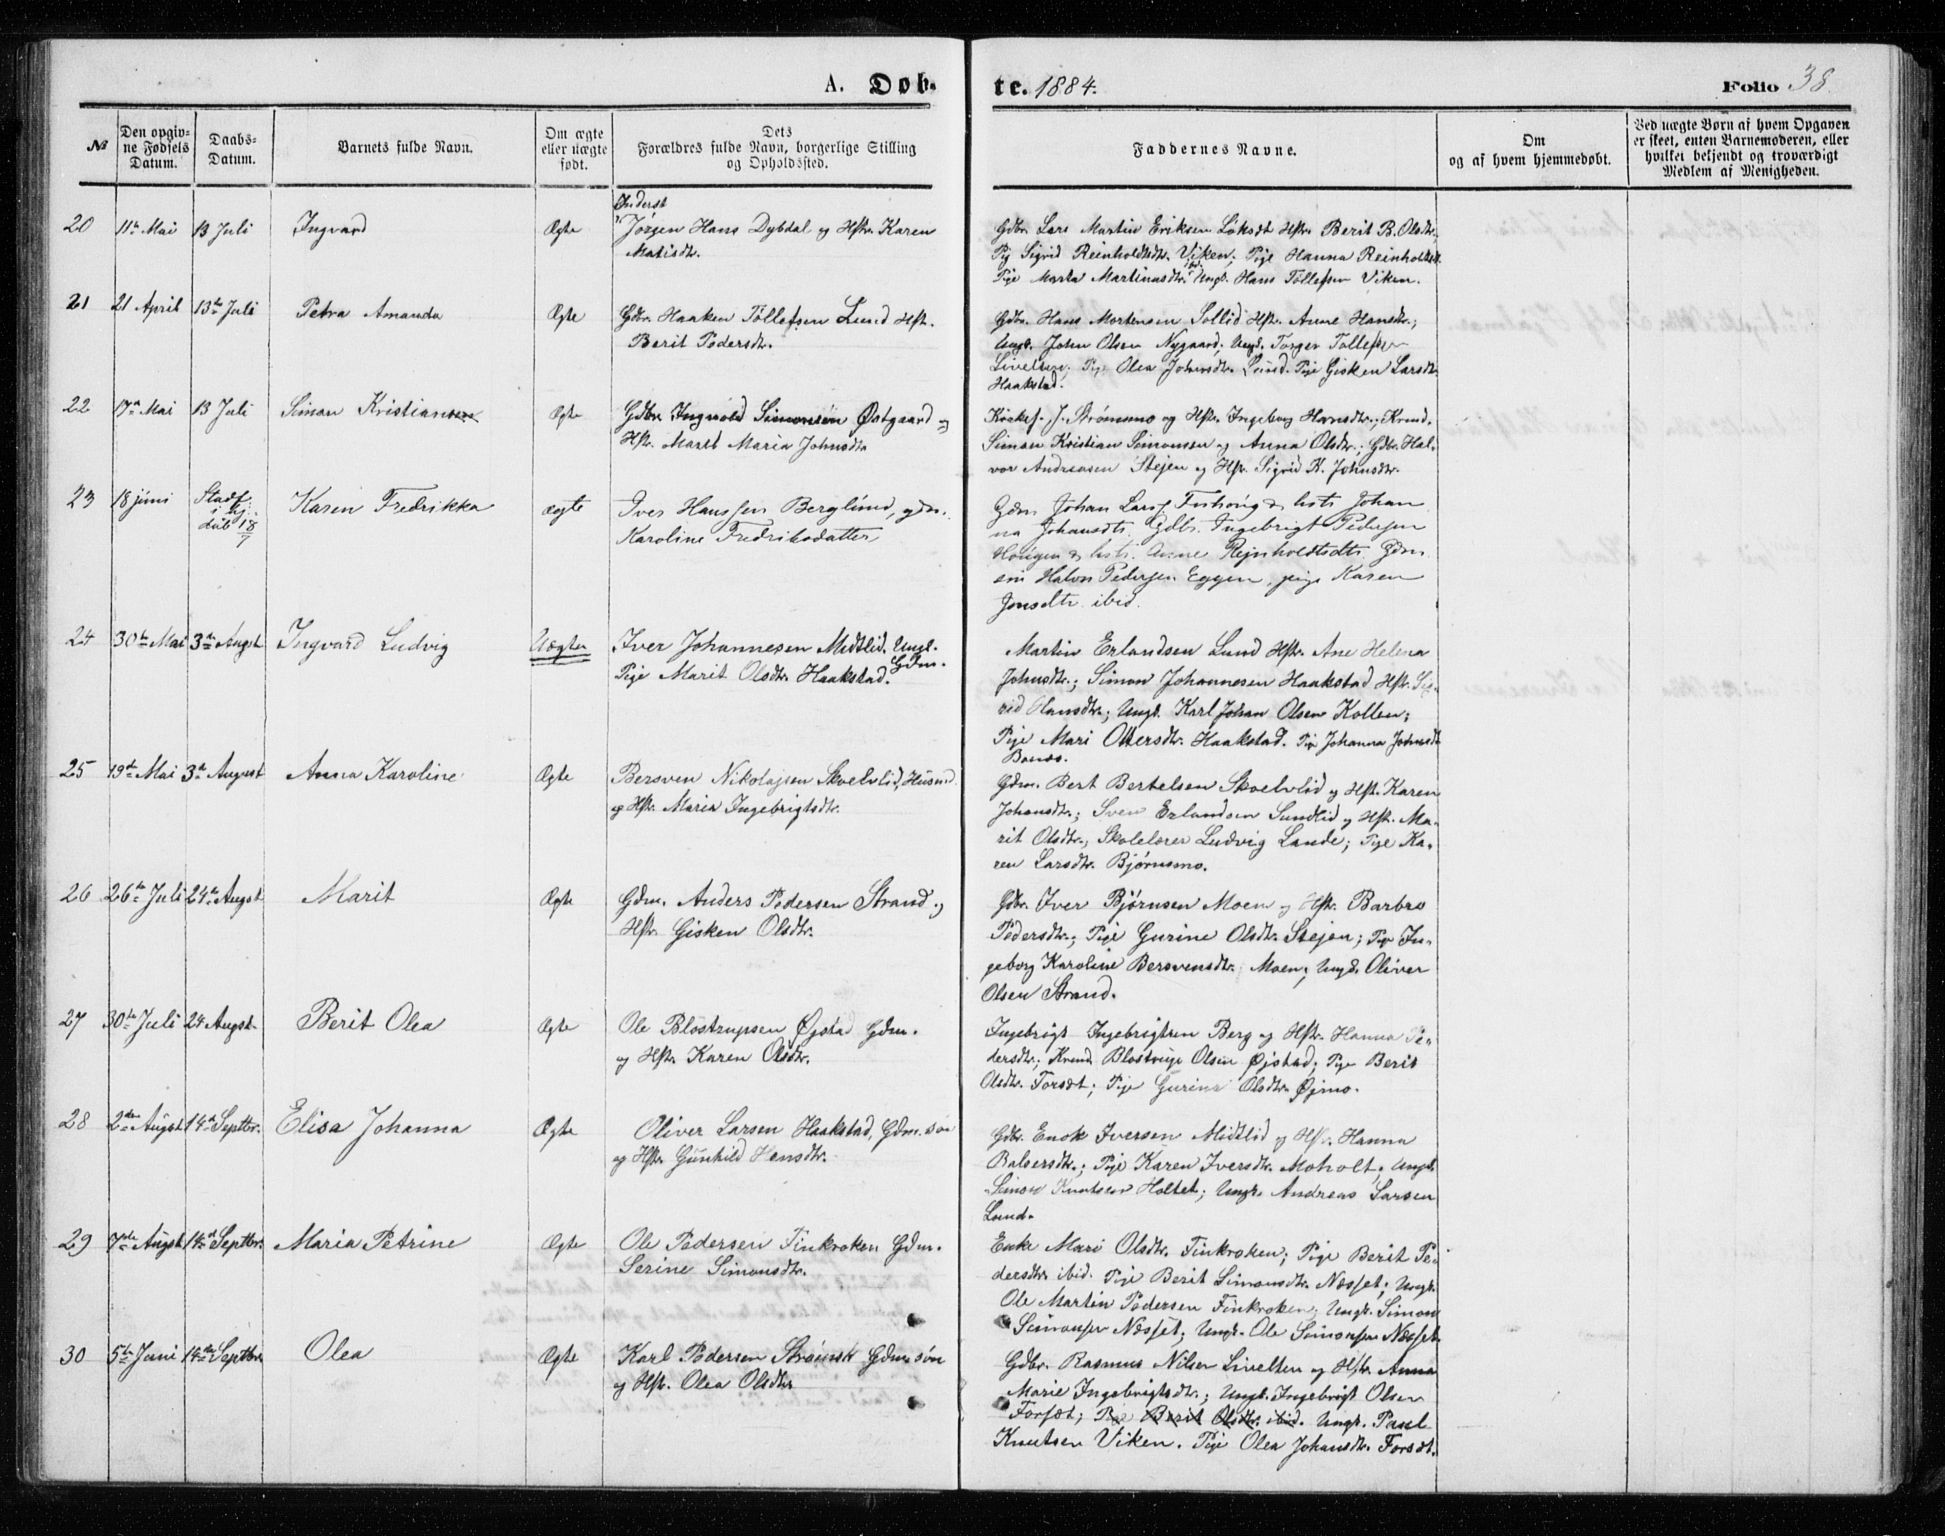 A. Døb-
te. 1884.
Folio 38.
№
Den opgiv-
ne Fødsels
Datum.
Daabs-
Datum.
Barnets fulde Navn.
Om ægte
eller uægte
født.
Dets
Forældres fulde Navn, borgerlige Stilling
og Opholdssted.
Faddernes Navne.
Om
og af hvem hjemmedøbt.
Ved uægte Børn af hvem Opgaven
er skeet, enten Barnemoderen, eller
hvilket bekjendt og troværdigt
Medlem af Menigheden.
20 11te Mai 13 Juli Ingvard Ægte
Inderst
Jørgen Hans Dybdal og Hstr. Karen
Matisdtr.
Gdbr. Lars Martin Eriksen Løksæt Hstr. Berit B. Olsdtr.
Pig Sigrid Reinholdtsdtr. Viken; Pige Hanna Reinholdtsdtr.
Pige Marta Martinusdtr. ibd. Ungk. Hans Tollefsen Viken.
21 21 April 13de Juli Petra Amanda Ægte
Gdbr. Haaken Tollefsen Lund Hst.
Berit Pedersdtr.
Gdbr. Hans Mortensen Sollid Hst. Anne Hansdtr.;
Ungk. John Olsen Nygaard; Ungk. Torger Tollefsen
Livelten; Pige Olea Johnsdtr. Lund. Pige Gisken Larsdtr.
Haakstad.
22 17de Mai 13 Juli Simon Kristiansen Ægte
Gdbr. Ingvald Simonsen Østgaard og
Hstr. Marit Maria Johnsdtr
Kirkes. J. Strømsmo og Hstr. Ingeborg Hansdtr.; Krmd.
Simon Kristian Simonsen og Anna Olsdtr.; Gdbr. Hal-
vor Andreasen Stejen og Hstr. Sigrid K. Johnsdtr.
23 18 juni Stadf.
i Kj.
døb 18/7
Karen Fredrikka ægte
Iver Hanssen Berglund, gdm.
Karoline Fredriksdatter
Gdm Johan Larss. Furhoug & hstr Johan
na Johansdtr. Gdbr. Ingebrigt Pedersen
Hougen & hstr. Anne Rejnholdtsdtr. Gdm
søn Halvor Pedersen Eggen, pige Karen
Jonsdtr ibid.
24 30te Mai 3die Augst Ingvard Ludvig Uægte
Iver Johannesen Midtlid. Ungk.
Pige Marit Olsdtr. Haakstad. Gdm.
Martin Erlandsen Lund Hstr. Ane Helena
Johnsdtr.; Simon Johannesen Haakstad Hstr. Sig-
rid Hansdtr.; Ungk. Karl Johan Olsen Kollen;
Pige Mari Ottersdtr. Haakstad. Pige Johanna Johnsdtr
Bones.
25 19de Mai 3die August Anna Karoline Ægte
Bersven Nikolajsen Skoelvlid, Husmd.
og Hstr. Maria Ingebrigtsdtr.
Gdm. Bert Bertelsen Skoelvlid og Hst. Karen
Johansdtr.; Sven Erlandsen Sundlid og Hstr. Ma-
rit Olsdtr., Skolelærer Ludvig Lande; Pige Ka-
ren Larsdtr. Bjørnsmo.
26 26de Juli 24de Augst Marit Ægte
Gdm. Anders Pedersen Strand og
Hstr. Gisken Olsdtr.
Gdbr. Iver Bjørnsen Moen og Hstr. Barbro
Pedersdtr.; Pige Gurine Olsdtr. Stejen; Pige In-
geborg Karoline Bersvensdtr. Moen; Ungk. Oliver
Olsen Strand.
27 30te Juli 24 Augst. Berit Olea Ægte
Ole Blostrupsen Øjstad Gdm.
og Hstr. Karen Olsdtr.
Ingebrigt Ingebrigtsen Berg og Hstr. Hanna Pe-
dersdtr.; Krmd. Blostrup Olsen Øjstad; Pige Berit
Olsdtr. Forsæt; Pige Gurine Olsdtr. Øjmo.
28 2den Augst 14de Septbr. Elisa Johanna Ægte
Oliver Larsen Haakstad, Gdm. søn
og Hstr. Gunhild Hansdtr.
Gdbr. Enok Iversen Midtlid og Hstr. Hanna
Balsersdtr.; Pige Karen Iversdtr. Moholt; Ungk.
Simon Knutsen Holtet; Ungk. Andreas Larsen
Lund.
29 7de Augst. 14de Septbr. Maria Petrine Ægte
Ole Pedersen Finkroken Gdm.
Serine Simonsdtr.
Enke Mari Olsdtr. Finkroken; Pige Berit Pe-
dersdtr. ibid. Pige Berit Simonsdtr. Næsset; Ungk.
Ole Martin Pedersen Finkroken; Ungk. Simon
Simonsen Næsset; Ungk. Ole Simonsen Næsset.
30 5te Juni 14de Septbr Olea Ægte
Karl Pedersen Strømsk Gdm. søn
og Hstr. Olea Olsdtr
Gdbr. Rasmus Nilsen Livelten og Hstr. Anna
Marie Ingebrigtsdtr.; Ungk. Ingebrigt Olsen
Forsæt; Pige Berit Olsdtr. ibid. Ungk. Paul
Knutsen Viken. Pige Olea Johansdtr. Forsæt.